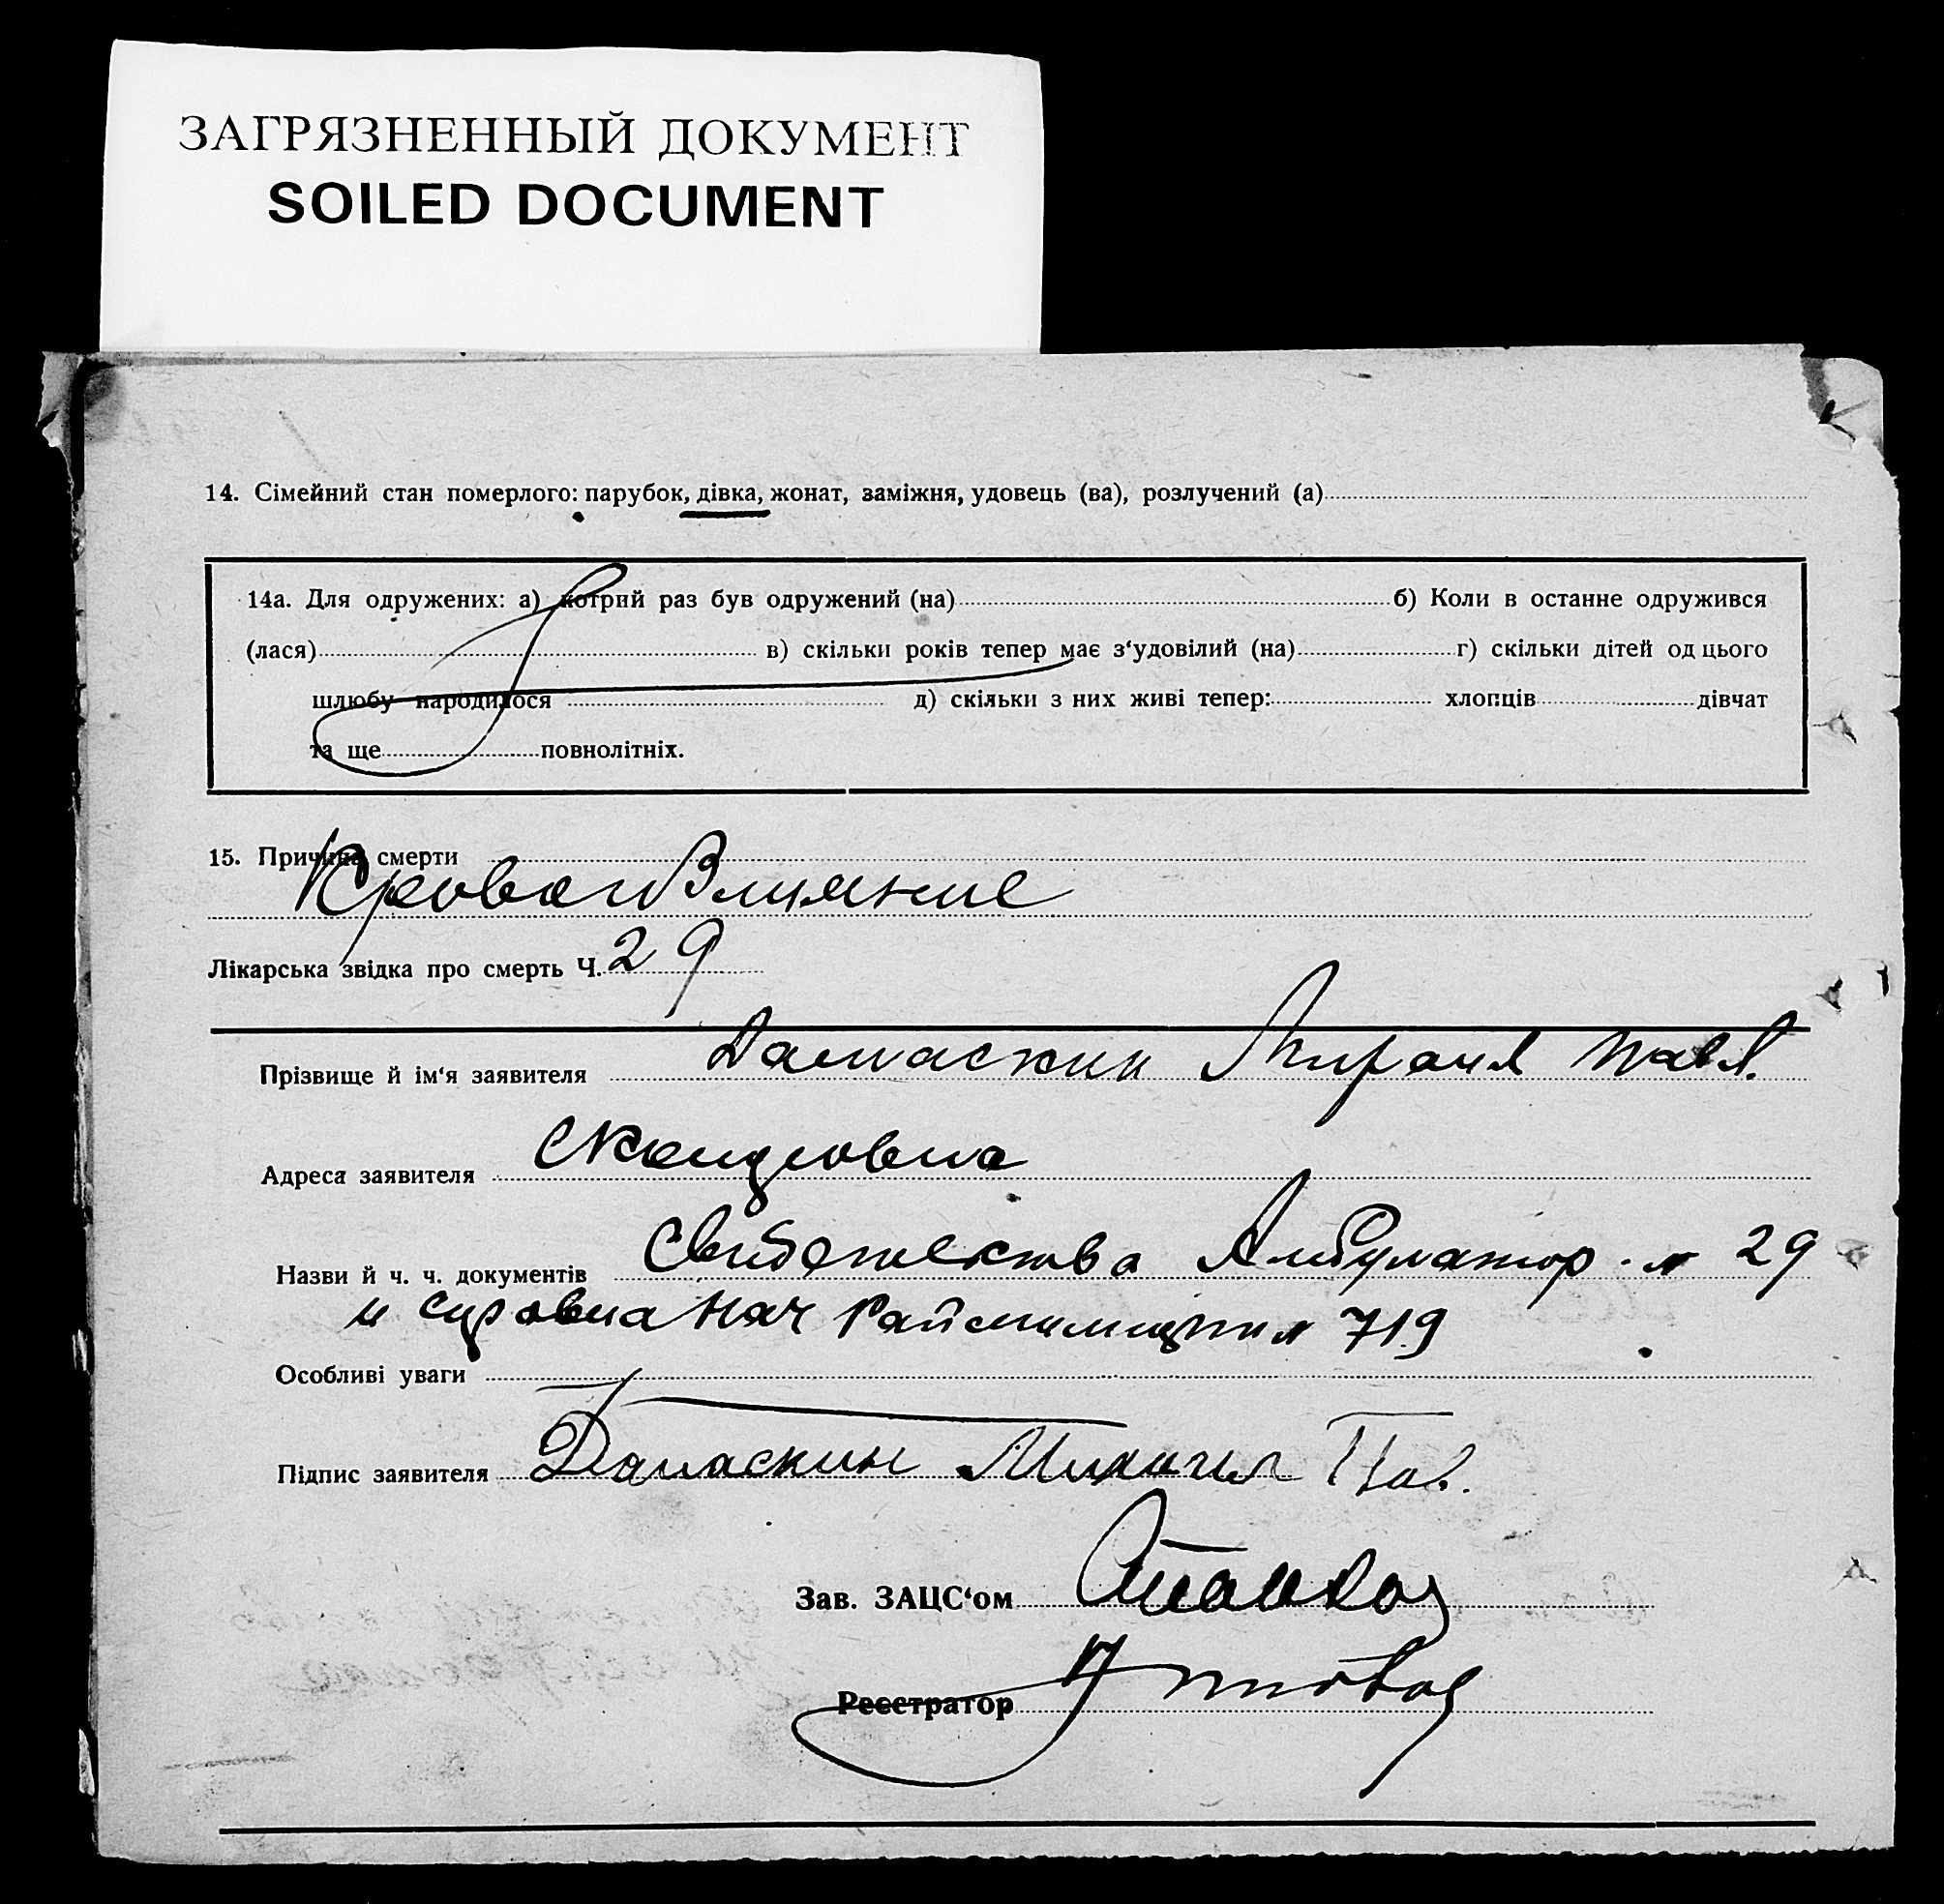 ЗАГРЯЗНЕННЫЙ ДОКУМЕНТ
SOILED DOCUMENT
14. Сімейний стан померлого: парубок, дівка, жонат, заміжня, удовець (ва), розлучений (а)
14а. Для одружених: а) котрий раз був одружений (на) б) Коли в останне одружився
(лася) в) скільки років тепер має з‘удовілий (на) г) скільки дітей од цього
шлюбу народилося д) скільки з них живі тепер: хлопців дівчат
та ще повнолітніх.
15. Причина смерти
Кровоизлияние
Лікарська звідка про смерть Ч. 29
Прізвище й ім‘я заявителя Дамаскин Михаил Павл.
Адреса заявителя
Назви й ч. ч. документів Амбулатор. 29
и нач Раймилиции 719
Особливі уваги
Підпис заявителя Дамаскин Михаил Пав.
Зав. ЗАЦС‘ом
Реєстратор